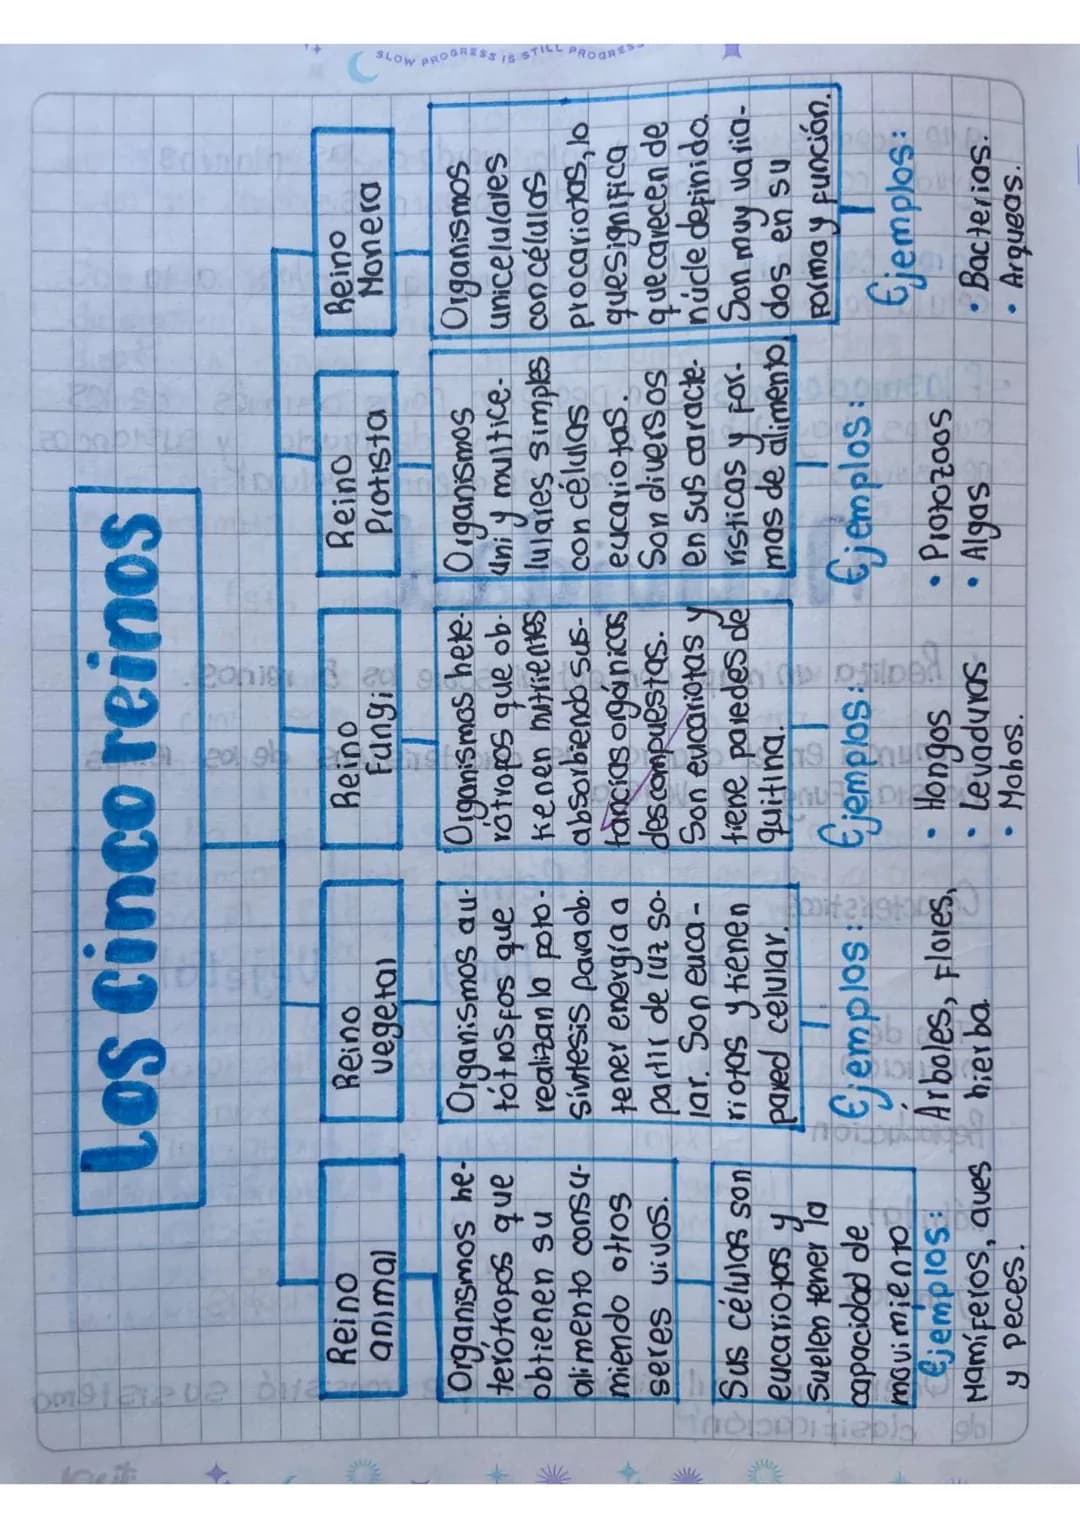 SLOW PROGRESS IS STILL PROGRESS
Los cinco reinos
Reino
animal
Organismos he-
terótropos que
obtienen su
alimento consu-
miendo otros
seres vivos.
Sus células son
eucariotas y
suelen tener la
capacidad de
movimiento
Ejemplos:
Mamíferos, aves
y peces.
Reino
vegetal
Organismos au-
tótrosfos que
realizan la foto-
síntesis para ob-
tener energía a
partir de luz so-
lar. Son euca-
riotas y tienen
pared celular.
Ejemplos:
Árboles, Flores,
hierba
Reino
Fungi
Organismos hete-
rótropos que ob-
tienen nutrientes
absorbiendo sus-
tancias orgánicas
descompuestas.
Son eucariotas y
tiene paredes de
quitina.
Ejemplos:
• Hongos
• Levaduras
• Mohos.
Reino
Protista
Organismos
uni y multice-
lulares simples
con células
eucariotas.
Son diversos
en sus caracte-
rísticas y for-
mas de alimento
Ejemplos:
• Protozoos
• Algas
Reino
Monera
Organismos
unicelulares
con células
procariotas, lo
que significa
que carecen de
núcle definido.
Son muy varia-
dos en su
forma y función.
Ejemplos:
• Bacterias.
• Arqueas.